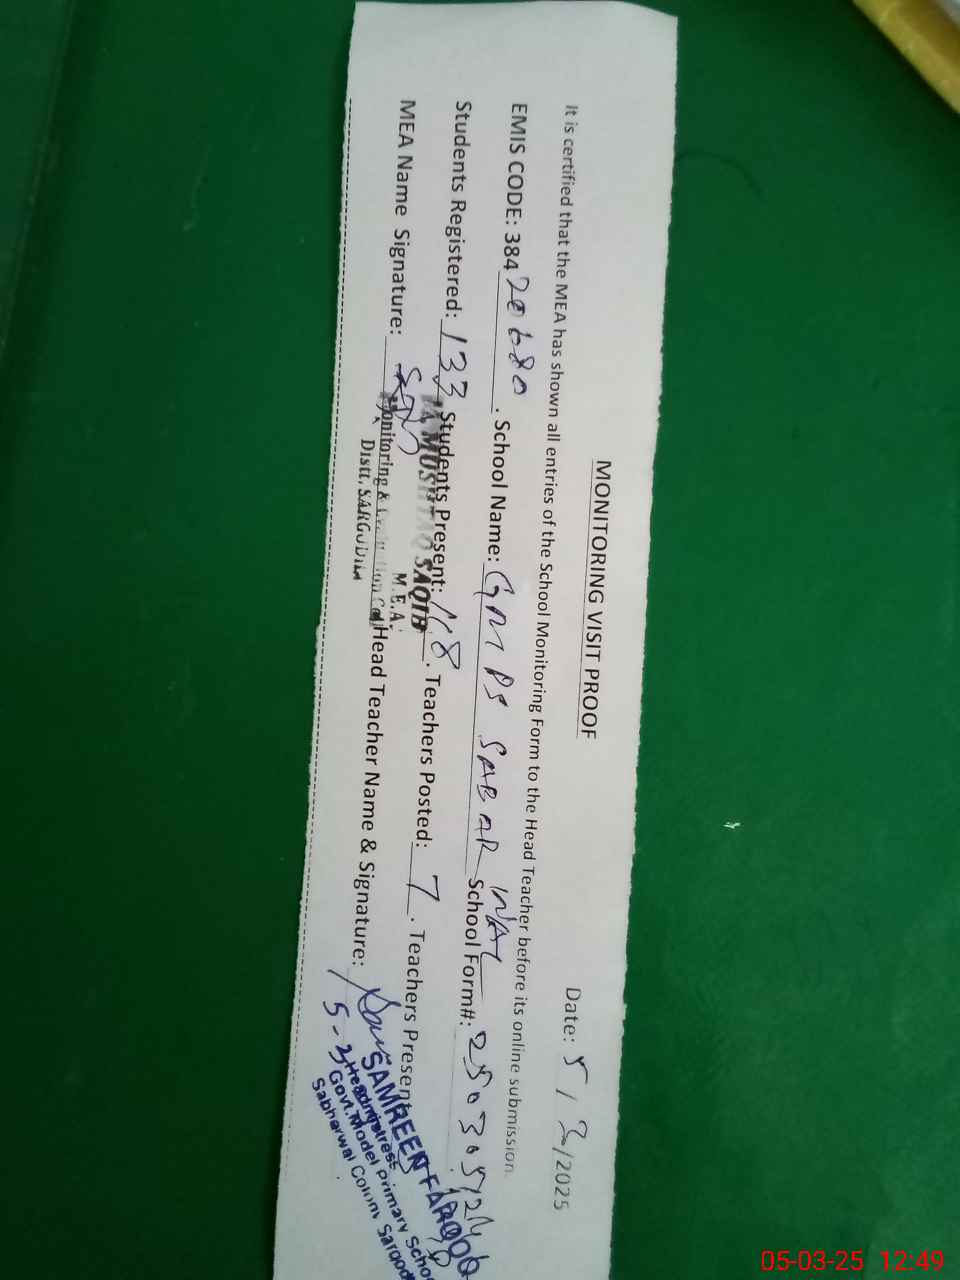 MONITORING VISIT PROOF
Date: 5/3/2025
It is certified that the MEA has shown all entries of the School Monitoring Form to the Head Teacher before its online submission.
EMIS CODE: 38420680. School Name: GMPS SABARWAL School Form#:
Students Registered: 133 Students Present: 118. Teachers Posted: 7. Teachers Present
MEA Name Signature: Head Teacher Name & Signature:
MUSHTAQ SAQIB
M.E.A.
Monitoring & Evaluation Cell
Distt. SARGODHA
SAMREEN FAROOQ
Headmistress
Govt. Model Primary School
Sabharwal Colony Sargodha
05-03-25 12:49